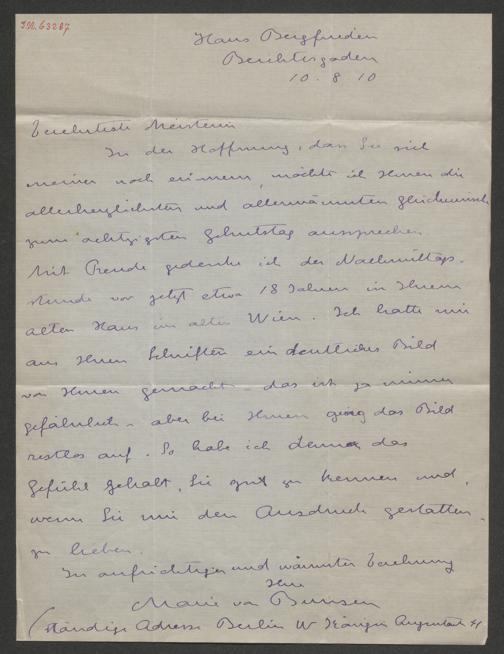 I.N. 63287
Haus Bergfrieden
Berchtesgaden
10. 8 10
Verehrteste Meisterin
In der Hoffnung, dass Sie sich
meiner noch erinnern, möchte ich Ihnen die
allerherzlichsten und allerwärmsten Glückwünsche
zum achtzigsten Geburtstag aussprechen.
Mit Freude gedenke ich der Nachmittags-
stunde vor jetzt etwa 18 Jahren in Ihrem
alten Haus im alten Wien. Ich hatte mir
aus Ihren Schriften ein deutliches Bild
von Ihnen gemacht - das ist ja immer
gefährlich - aber bei Ihnen ging das Bild
restlos auf. So habe ich denn das
Gefühl gehabt, Sie gut zu kennen und,
wenn Sie mir den Ausdruck gestatten,
zu lieben.
In aufrichtiger und wärmster Verehrung
Ihre
Marie von Bunsen
(ständige Adresse Berlin W Königin Augustastr 41